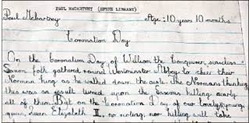 PAUL McCARTNEY (SPEKE LIBRARY)
Paul McCartney Age: 10 years 10 months
Coronation Day
On the Coronation Day of William the Conqueror, senseless
Saxon folk gathered round Westminster Abbey to cheer their
Norman king as he walked down the aisle. The Normans thinking
this was an insult turned upon the Saxons killing nearly
all of them. But on the Coronation Day of our lovely young
queen, Queen Elizabeth II, no rioting nor killing will take